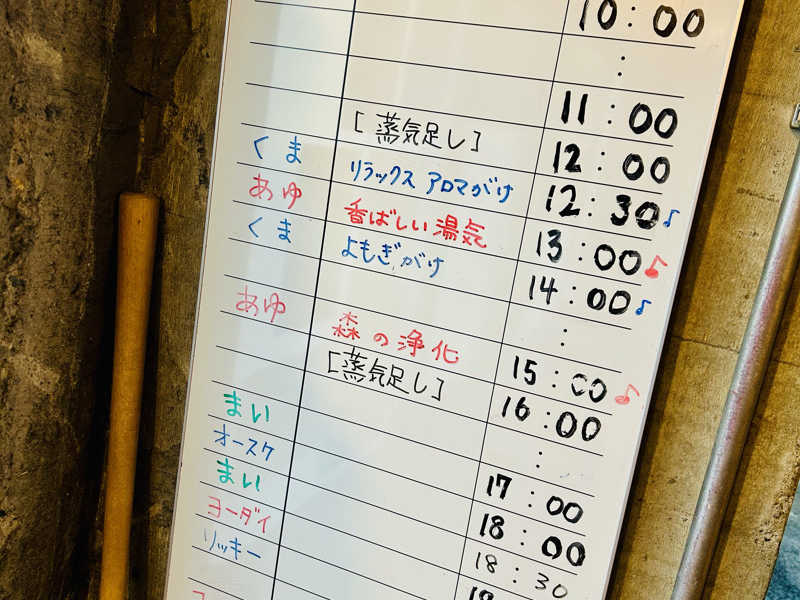 10:00
:
11:00
[蒸気足し] 12:00
くま リラックス アロマがけ 12:30♪
あゆ 香ばしい湯気 13:00♪
くま よもぎがけ 14:00♪
:
あゆ 森の浄化 15:00♪
[蒸気足し] 16:00
:
まい 17:00
オースケ 18:00
まい 18:30
ヨーダイ
リッキー